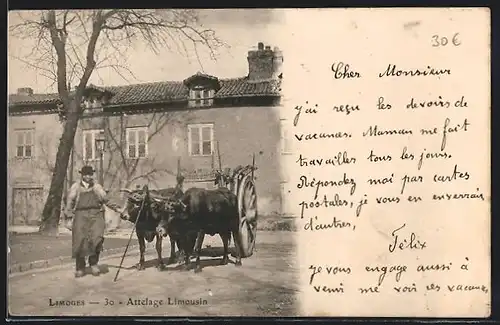 30€
Cher Monsieur
j'ai reçu les devoirs de
vacances. Maman me fait
travailler tous les jours.
Répondez moi par cartes
postales, je vous en enverrais
d'autres,
Félix
je vous engage aussi à
venir me voir ces vacances
LIMOGES — 30 - Attelage Limousin